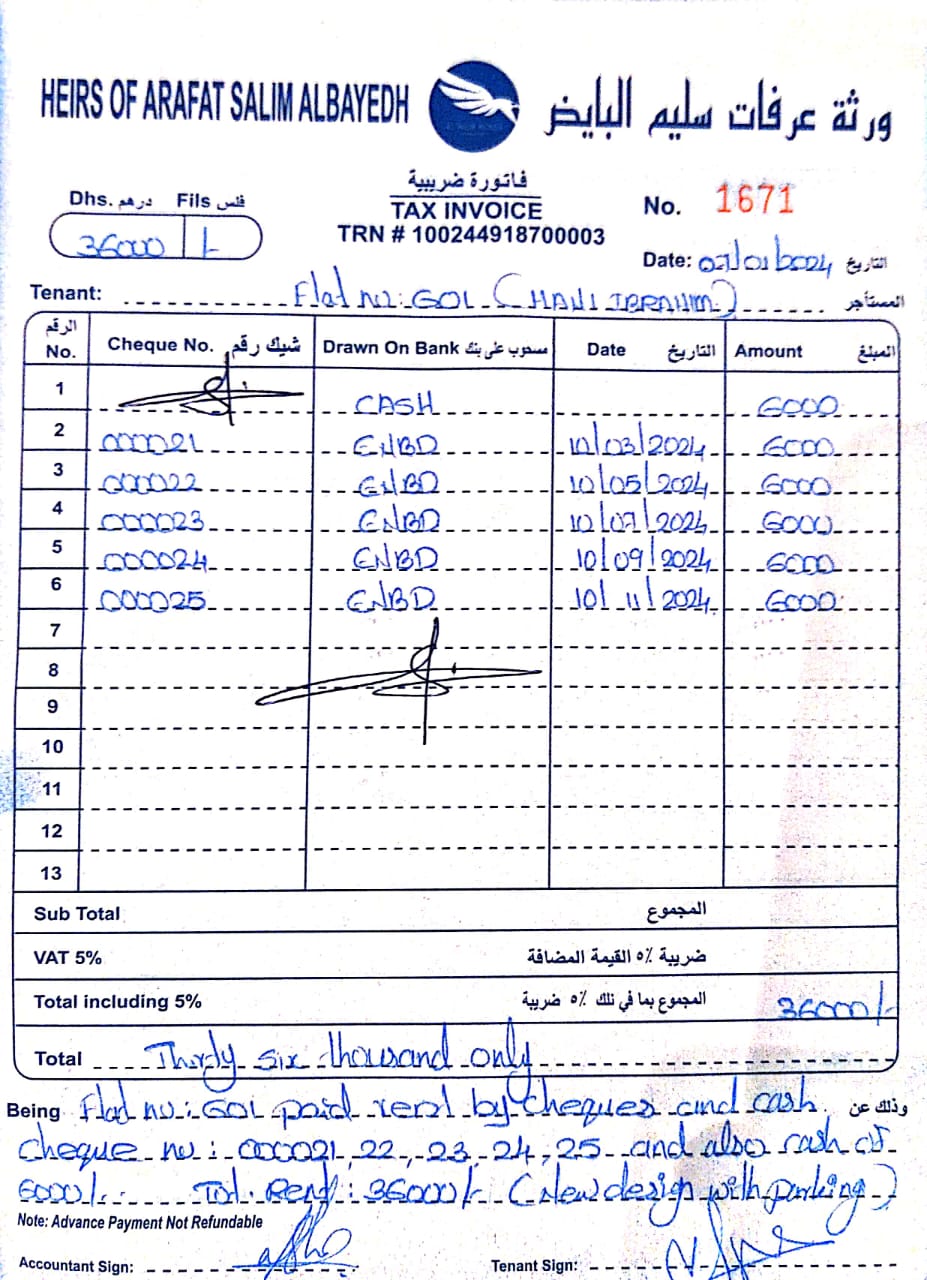 HEIRS OF ARAFAT SALIM ALBAYEDH ورثة عرفات سليم البايض
فاتورة ضريبية
Dhs. درهم Fils فلس
TAX INVOICE
No. 1671
36000 /-
TRN # 100244918700003
Date: 07/01/2024 التاريخ
Tenant: Flat no: 601 (HANI IBRAHIM) المستأجر
الرقم No. Cheque No. شيك رقم Drawn On Bank مسحوب على بنك Date التاريخ Amount المبلغ
1 CASH 6000
2 000021 ENBD 10/03/2024 6000
3 000022 ENBD 10/05/2024 6000
4 000023 ENBD 10/07/2024 6000
5 000024 ENBD 10/09/2024 6000
6 000025 ENBD 10/11/2024 6000
7
8
9
10
11
12
13
Sub Total المجموع
VAT 5% ضريبة ٥٪ القيمة المضافة
Total including 5% المجموع بما في تلك ٥٪ ضريبة 36000/-
Total Thirdy six thousand only
Being Flat no: 601 paid rent by cheques and cash وذلك عن
cheque no: 000021, 22, 23, 24, 25 and also cash of
6000/- Tot. Rent: 36000/- (New design with parking)
Note: Advance Payment Not Refundable
Accountant Sign: Tenant Sign: